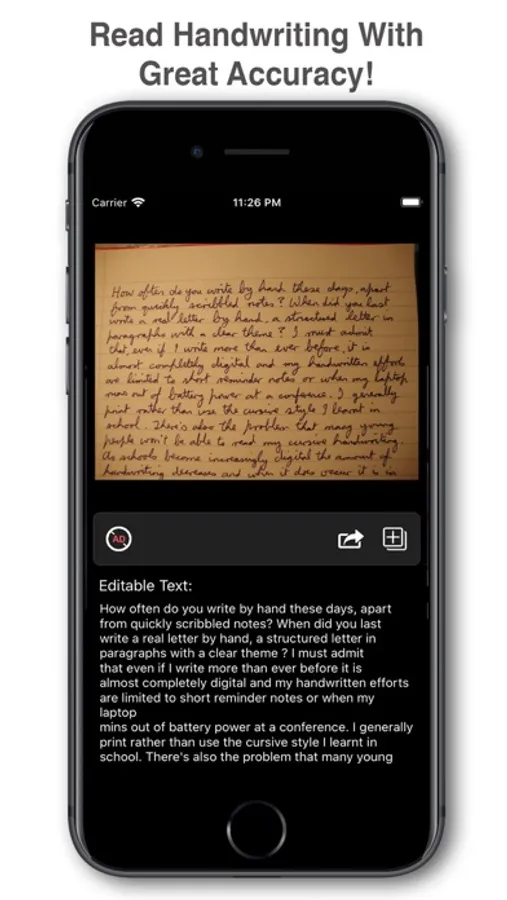 Read Handwriting With
Great Accuracy!
Carrier
11:26 PM
How often do you write by hand these days, apart
from quickly scribbled notes? When did you last
write a real letter by hand, a structured letter in
paragraphs with a clear theme? I must admit
that, even if I write more than ever before, it is
almost completely digital and my handwritten efforts
are limited to short reminder notes or when my laptop
runs out of battery power at a conference. I generally
print rather than use the cursive style I learnt in
school. There's also the problem that many young
people won't be able to read my cursive handwriting.
As schools become increasingly digital the amount of
handwriting decreases and when it does occur it is in
AD
Editable Text:
How often do you write by hand these days, apart
from quickly scribbled notes? When did you last
write a real letter by hand, a structured letter in
paragraphs with a clear theme ? I must admit
that even if I write more than ever before it is
almost completely digital and my handwritten efforts
are limited to short reminder notes or when my
laptop
mins out of battery power at a conference. I generally
print rather than use the cursive style I learnt in
school. There's also the problem that many young